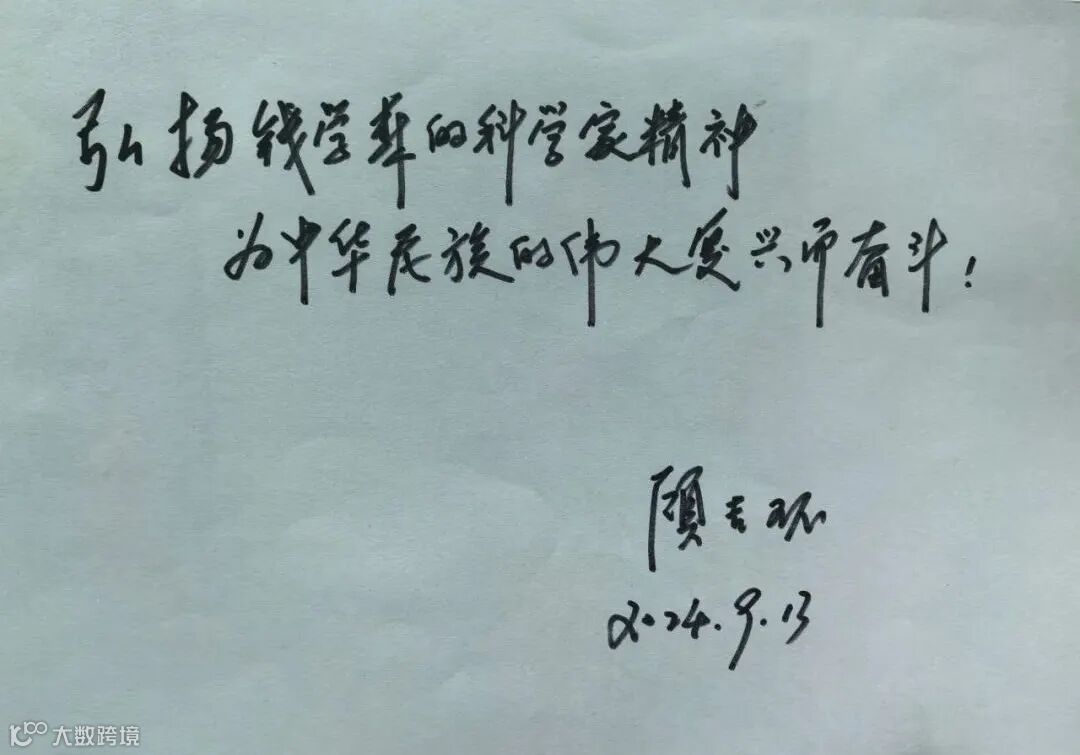 弘扬钱学森的科学家精神
为中华民族的伟大复兴而奋斗！
顾吉环
2024.9.13
大数跨境